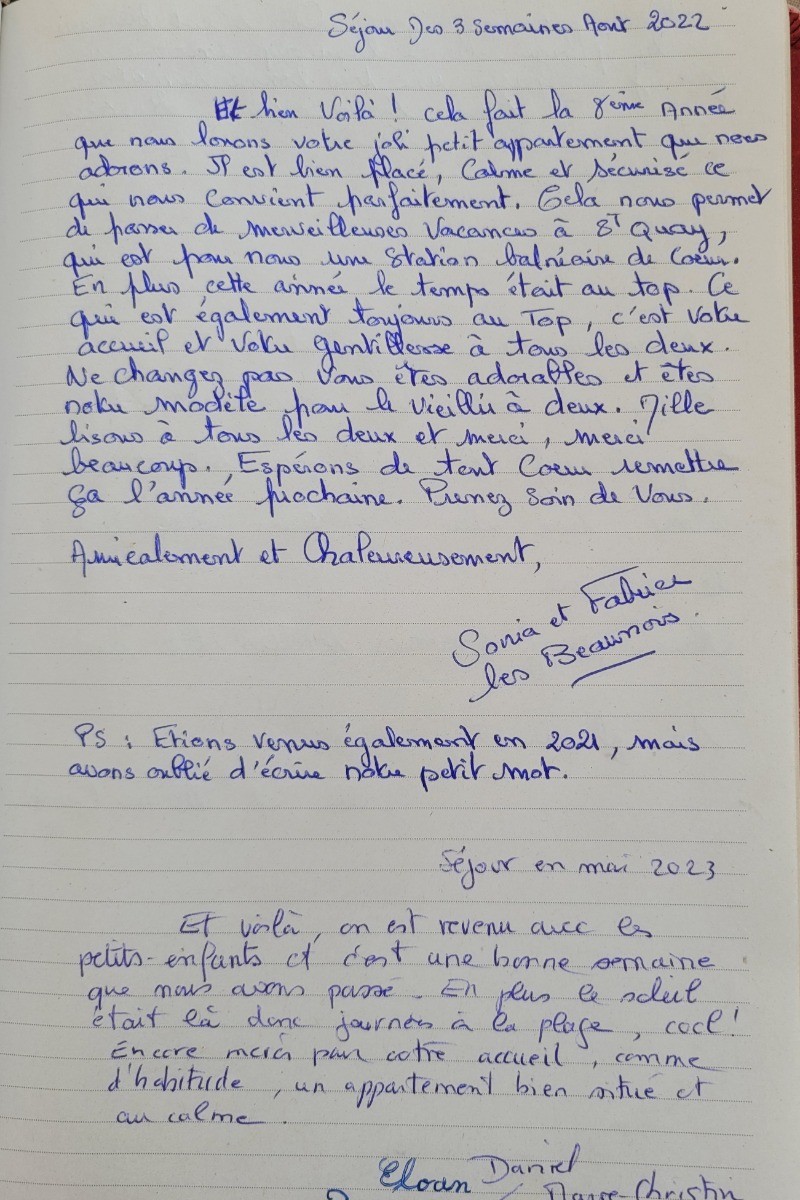 Séjour Des 3 Semaines Aout 2022
Et bien Voilà ! cela fait la 8ème Année
que nous louons votre joli petit appartement que nous
adorons. Il est bien placé, Calme et sécurisé ce
qui nous Convient parfaitement. Cela nous permet
de passer de merveilleuses Vacances à St Quay,
qui est pour nous une Station balnéaire de Coeur.
En plus cette année le temps était au top. Ce
qui est également toujours au Top, c'est Votre
accueil et Votre gentillesse à tous les deux.
Ne changez pas Vous êtes adorables et êtes
notre modèle pour le vieillir à deux. Mille
bisous à tous les deux et merci, merci
beaucoup. Espérons de tout Coeur remettre
ça l'année prochaine. Prenez Soin de Vous.
Amicalement et Chaleureusement,
Sonia et Fabrice
les Beaunois.
PS : Etions venus également en 2021, mais
avons oublié d'écrire notre petit mot.
Séjour en mai 2023
Et voilà, on est revenu avec les
petits-enfants et c'est une bonne semaine
que nous avons passé. En plus le soleil
était là donc journées à la plage, cool !
Encore merci pour votre accueil, comme
d'habitude, un appartement bien situé et
au calme.
Daniel
Eloan